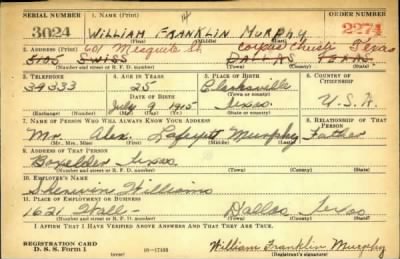 SERIAL NUMBER 1. NAME (Print) ORDER NUMBER
3024 WILLIAM FRANKLIN MURPHY 2274
601 Mesquite St Corpus Christi Texas
2. ADDRESS (Print)
5105 SWISS DALLAS TEXAS
(Number and street or R. F. D. number) (Town) (County) (State)
3. TELEPHONE 4. AGE IN YEARS 5. PLACE OF BIRTH 6. COUNTRY OF CITIZENSHIP
39333 25 Clarksville
DATE OF BIRTH (Town or county)
July 9 1915 Texas U.S.A.
(Exchange) (Number) (Mo.) (Day) (Yr.) (State or country)
7. NAME OF PERSON WHO WILL ALWAYS KNOW YOUR ADDRESS 8. RELATIONSHIP OF THAT PERSON
Mr. Alex Lafayett Murphy Father
(Mr., Mrs., Miss) (First) (Middle) (Last)
9. ADDRESS OF THAT PERSON
Boxelder Texas
(Number and street or R. F. D. number) (Town) (County) (State)
10. EMPLOYER'S NAME
Sherwin Williams
11. PLACE OF EMPLOYMENT OR BUSINESS
1621 Wall Dallas Texas
(Number and street or R. F. D. number) (Town) (County) (State)
I AFFIRM THAT I HAVE VERIFIED ABOVE ANSWERS AND THAT THEY ARE TRUE.
REGISTRATION CARD
D. S. S. Form 1 (over) 16—17105 William Franklin Murphy
(Registrant's signature)